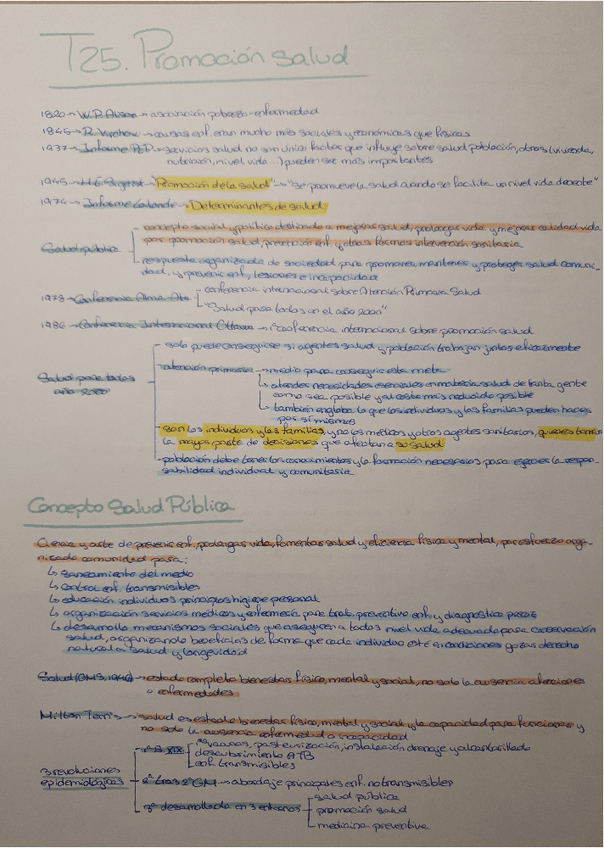 T25. Promoción salud
1820 → W.P. Alison → asociación pobreza-enfermedad
1846 → R. Virchow → causas enf. eran mucho más sociales y económicas que físicas
1937 → Informe PEP → servicios salud no son único factor que influye sobre salud población, otros (vivienda,
nutrición, nivel vida...) pueden ser más importantes
1945 → H.E. Sigerist → "Promoción de la salud" → "se promueve la salud cuando se facilita un nivel vida decente"
1974 → Informe Lalonde → Determinantes de salud
Salud pública
- concepto social y político destinado a mejorar salud, prolongar vida y mejorar calidad vida
por promoción salud, prevención enf. y otras formas intervención sanitaria
- respuesta organizada de sociedad para promover, mantener y proteger salud comuni-
dad, y prevenir enf, lesiones e incapacidad
1978 → Conferencia Alma Ata
- conferencia internacional sobre Atención Primaria Salud
- "Salud para todos en el año 2000"
1986 → Conferencia Internacional Ottawa → 1ª conferencia internacional sobre promoción salud
Salud para todos
año 2000
- solo puede conseguirse si agentes salud y población trabajan juntos eficazmente
- atención primaria → medio para conseguir esta meta
↳ atender necesidades esenciales en materia salud de tanta gente
como sea posible y al coste más reducido posible
↳ también engloba lo que los individuos y las familias pueden hacer
por sí mismos
- son los individuos y las familias, y no los médicos y otros agentes sanitarios, quienes toman
la mayor parte de decisiones que afectan a su salud
- población debe tener los conocimientos y la formación necesarios para ejercer la respon-
sabilidad individual y comunitaria
Concepto Salud Pública
Ciencia y arte de prevenir enf, prolongar vida, fomentar salud y eficiencia física y mental, por esfuerzo orga-
nizado comunidad para:
↳ saneamiento del medio
↳ control enf. transmisibles
↳ educación individuos principios higiene personal
↳ organización servicios médicos y enfermería para trat. preventivo enf. y diagnóstico precoz
↳ desarrollo mecanismos sociales que aseguren a todos nivel vida adecuado para conservación
salud, organizando beneficios de forma que cada individuo esté en condiciones gozar derecho
natural a salud y longevidad
Salud (OMS, 1946) → estado completo bienestar físico, mental y social, no solo la ausencia afecciones
o enfermedades
Milton Terris → salud es estado bienestar físico, mental y social y la capacidad para funcionar y
no solo la ausencia enfermedad o incapacidad
3 revoluciones
epidemiológicas
- 1ª S. XIX
vacunas, pasteurización, instalación drenaje y alcantarillado
descubrimiento ATB
enf. transmisibles
- 2ª tras 2ª GM → abordaje principales enf. no transmisibles
- 3ª desarrollada en 3 entornos
- salud pública
- promoción salud
- medicina preventiva